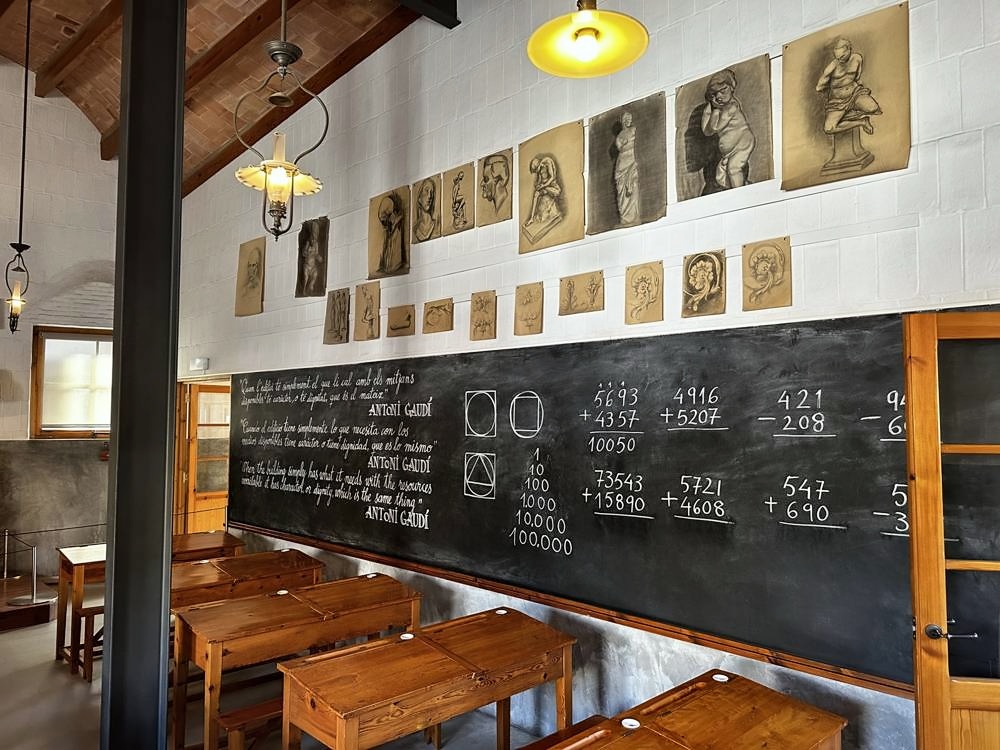 "Quan l'edifici té simplement el que li cal amb els mitjans
disponibles té caràcter, o té dignitat, que és el mateix"
ANTONÍ GAUDÍ
"Cuando el edificio tiene simplemente lo que necesita con los
medios disponibles tiene carácter o tiene dignidad, que es lo mismo"
ANTONÍ GAUDÍ
"When the building simply has what it needs with the resources
available it has character, or dignity, which is the same thing"
ANTONÍ GAUDÍ
1
10
100
1.000
10.000
100.000
1 1 1
5693
+ 4357
10050
4916
+ 5207
421
- 208
- 6
73543
+ 15890
5721
+ 4608
547
+ 690
5
- 3